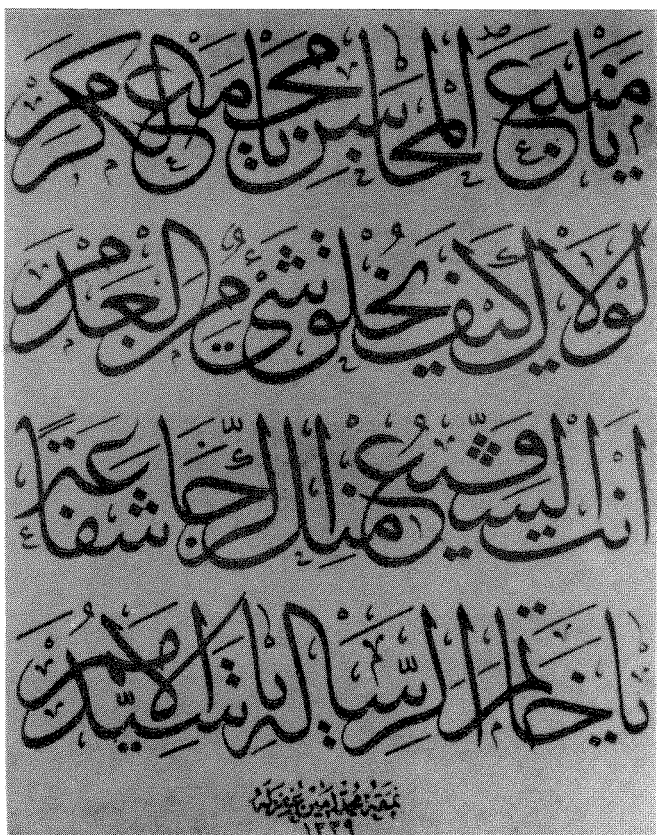 يا منبع المحاسن يا مجمع الكرم
لولاك كيف يخلق شئ من العدم
انت الشفيع منك الرجا شفاعة
يا خاتم الرسالة يا سيد الامم
نمقه محمد امين غفر له
١٣٣٩